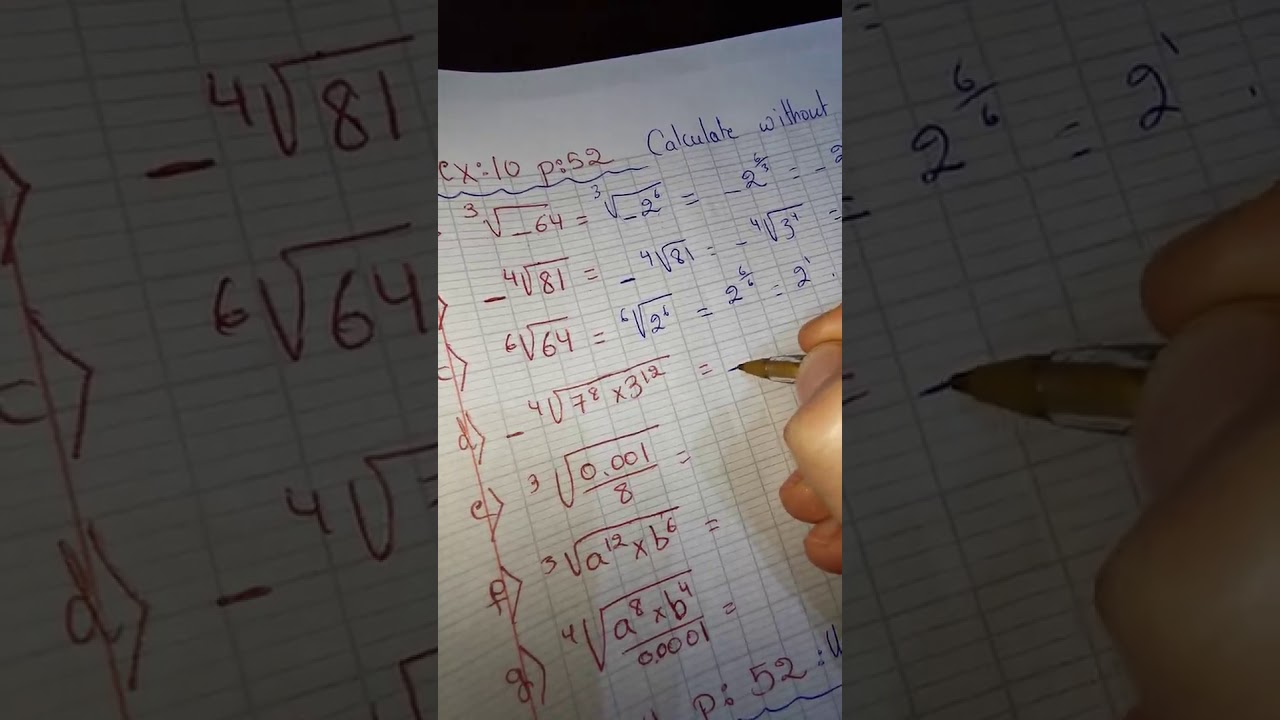 ex:10 p:52 Calculate without
∛(-64) = ∛(-2⁶) = -2^(6/3) = -2
-⁴√81 = -⁴√81 = -⁴√3⁴ =
c) ⁶√64 = ⁶√2⁶ = 2^(6/6) = 2¹.
d) -⁴√(7⁸ × 3¹²) =
e) ³√(0.001/8) =
f) ³√(a¹² × b⁶) =
g) ⁴√((a⁸ × b⁴)/0.0001) =
p: 52 :